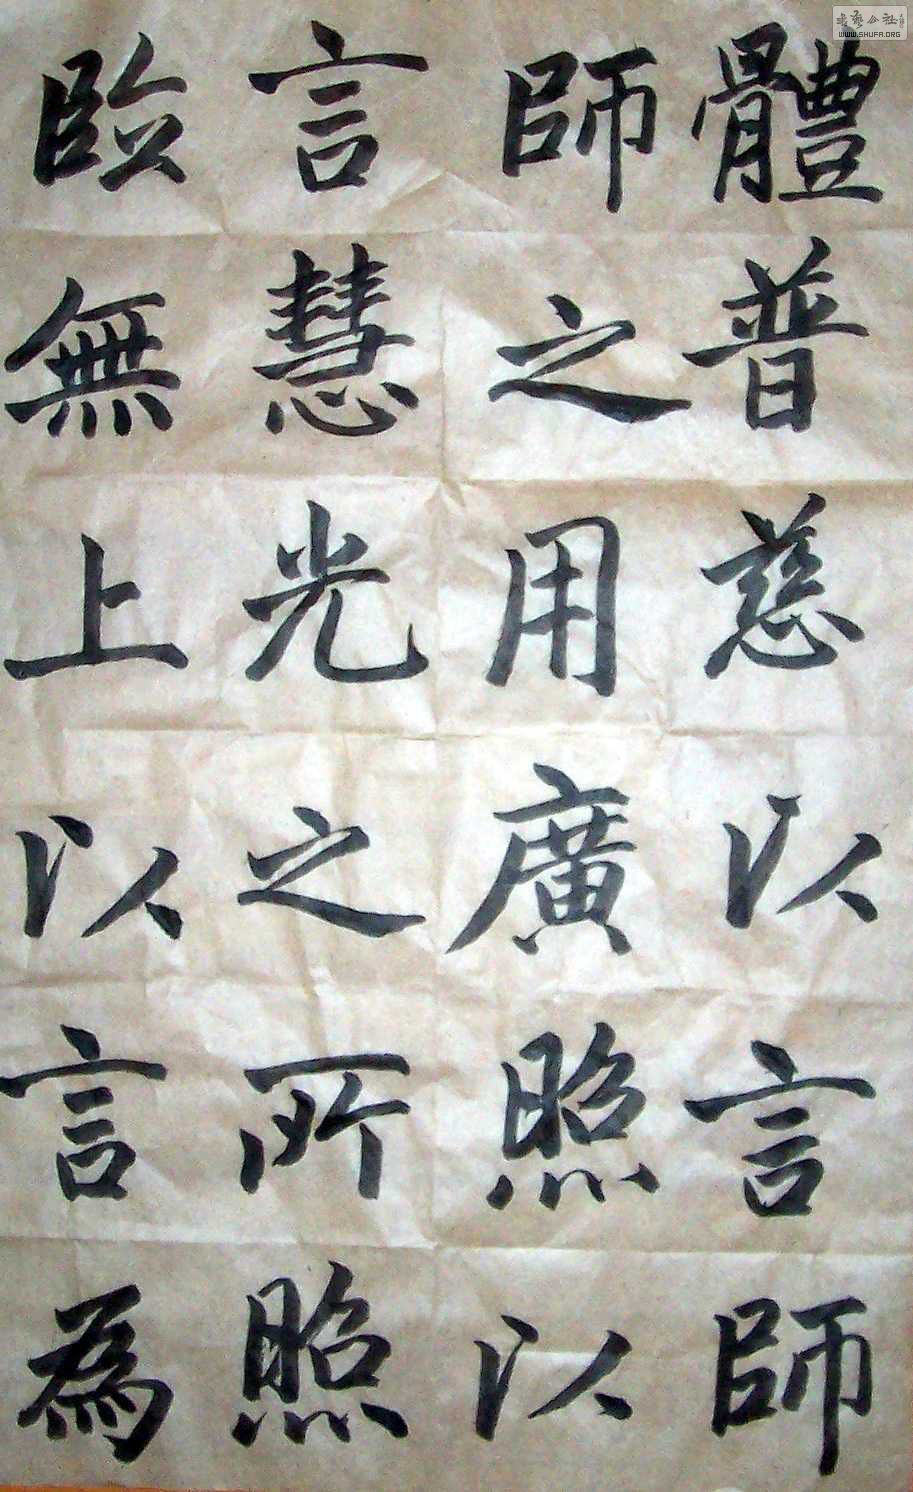 體普慈以言師
師之用廣照以
言慧光之所照
臨無上以言為
WWW.SHUFA.ORG